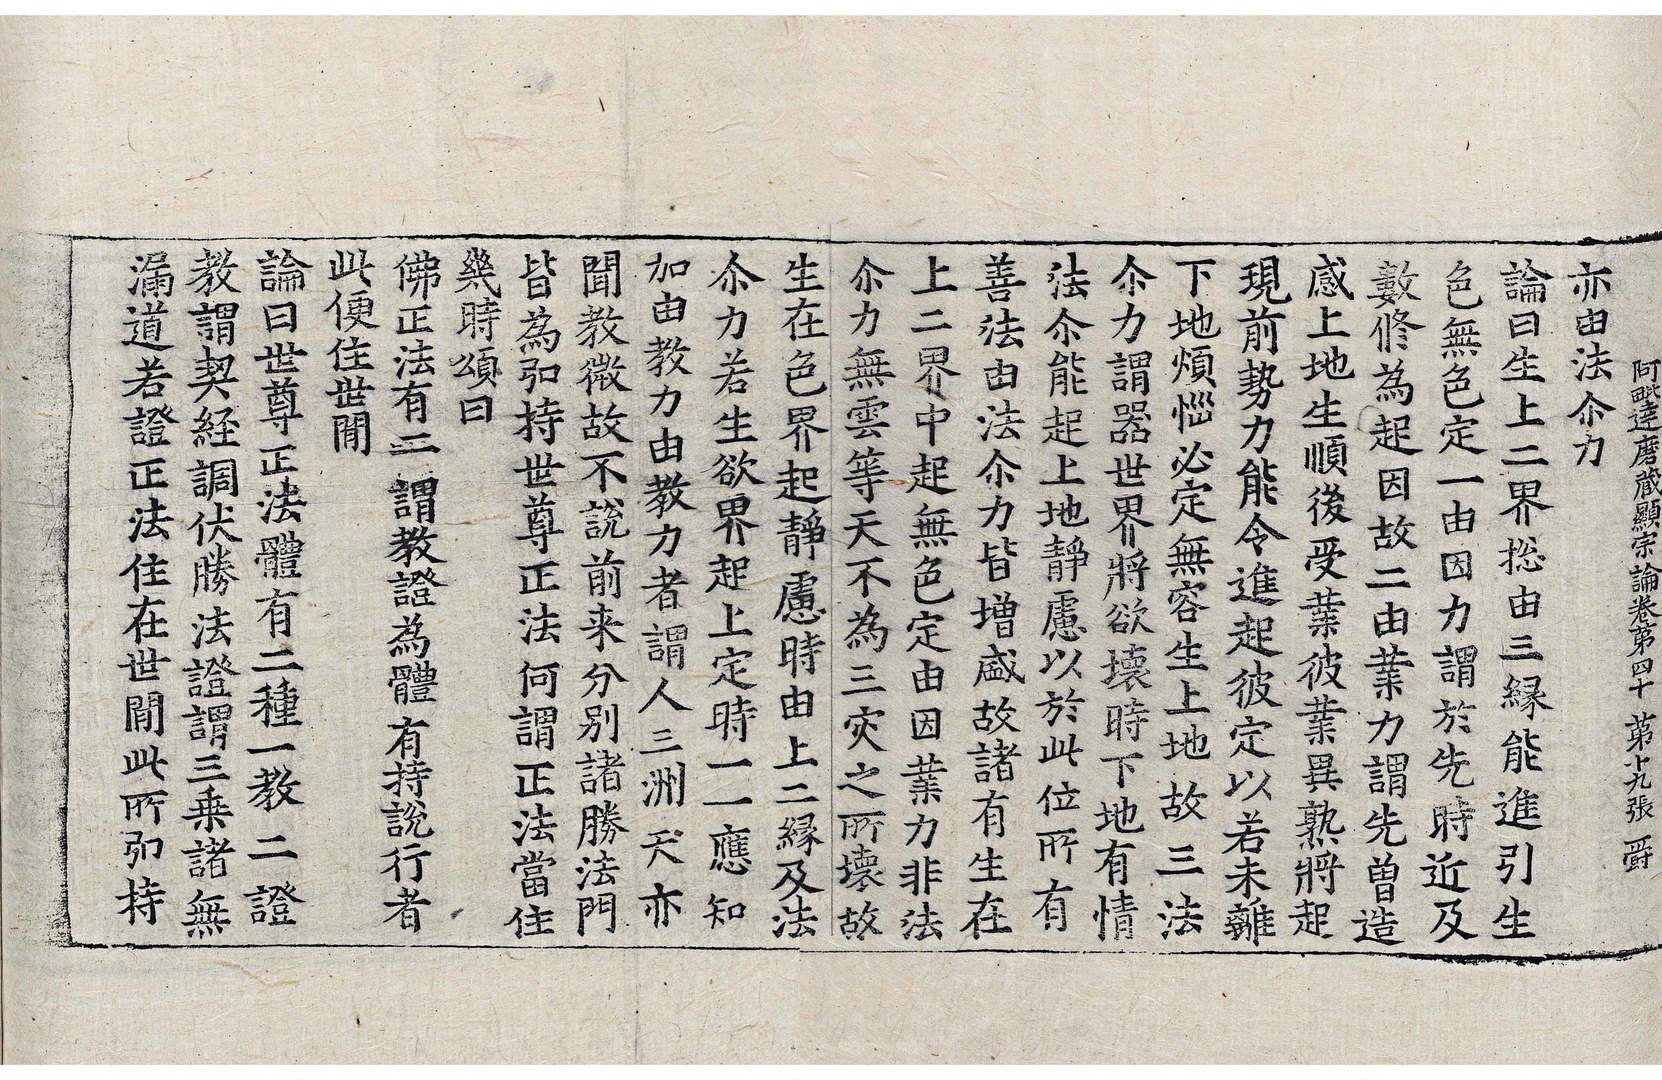 阿毗達磨藏顯宗論卷第四十 第十九張 爵
亦由法尒力
論曰生上二界揔由三縁能進引生
色無色定一由因力謂於先時近及
數修為起因故二由業力謂先曾造
感上地生順後受業彼業異熟將起
現前勢力能令進起彼定以若未離
下地煩惱必定無容生上地故三法
尒力謂器世界將欲壞時下地有情
法尒能起上地靜慮以於此位所有
善法由法尒力皆增盛故諸有生在
上二界中起無色定由因業力非法
尒力無雲等天不為三灾之所壞故
生在色界起靜慮時由上二縁及法
尒力若生欲界起上定時一一應知
加由教力由教力者謂人三洲天亦
聞教微故不説前来分别諸勝法門
皆為弘持世尊正法何謂正法當住
幾時頌曰
佛正法有二 謂教證為體 有持説行者
此便住世間
論曰世尊正法體有二種一教二證
教謂契経調伏勝法證謂三乗諸無
漏道若證正法住在世間此所弘持